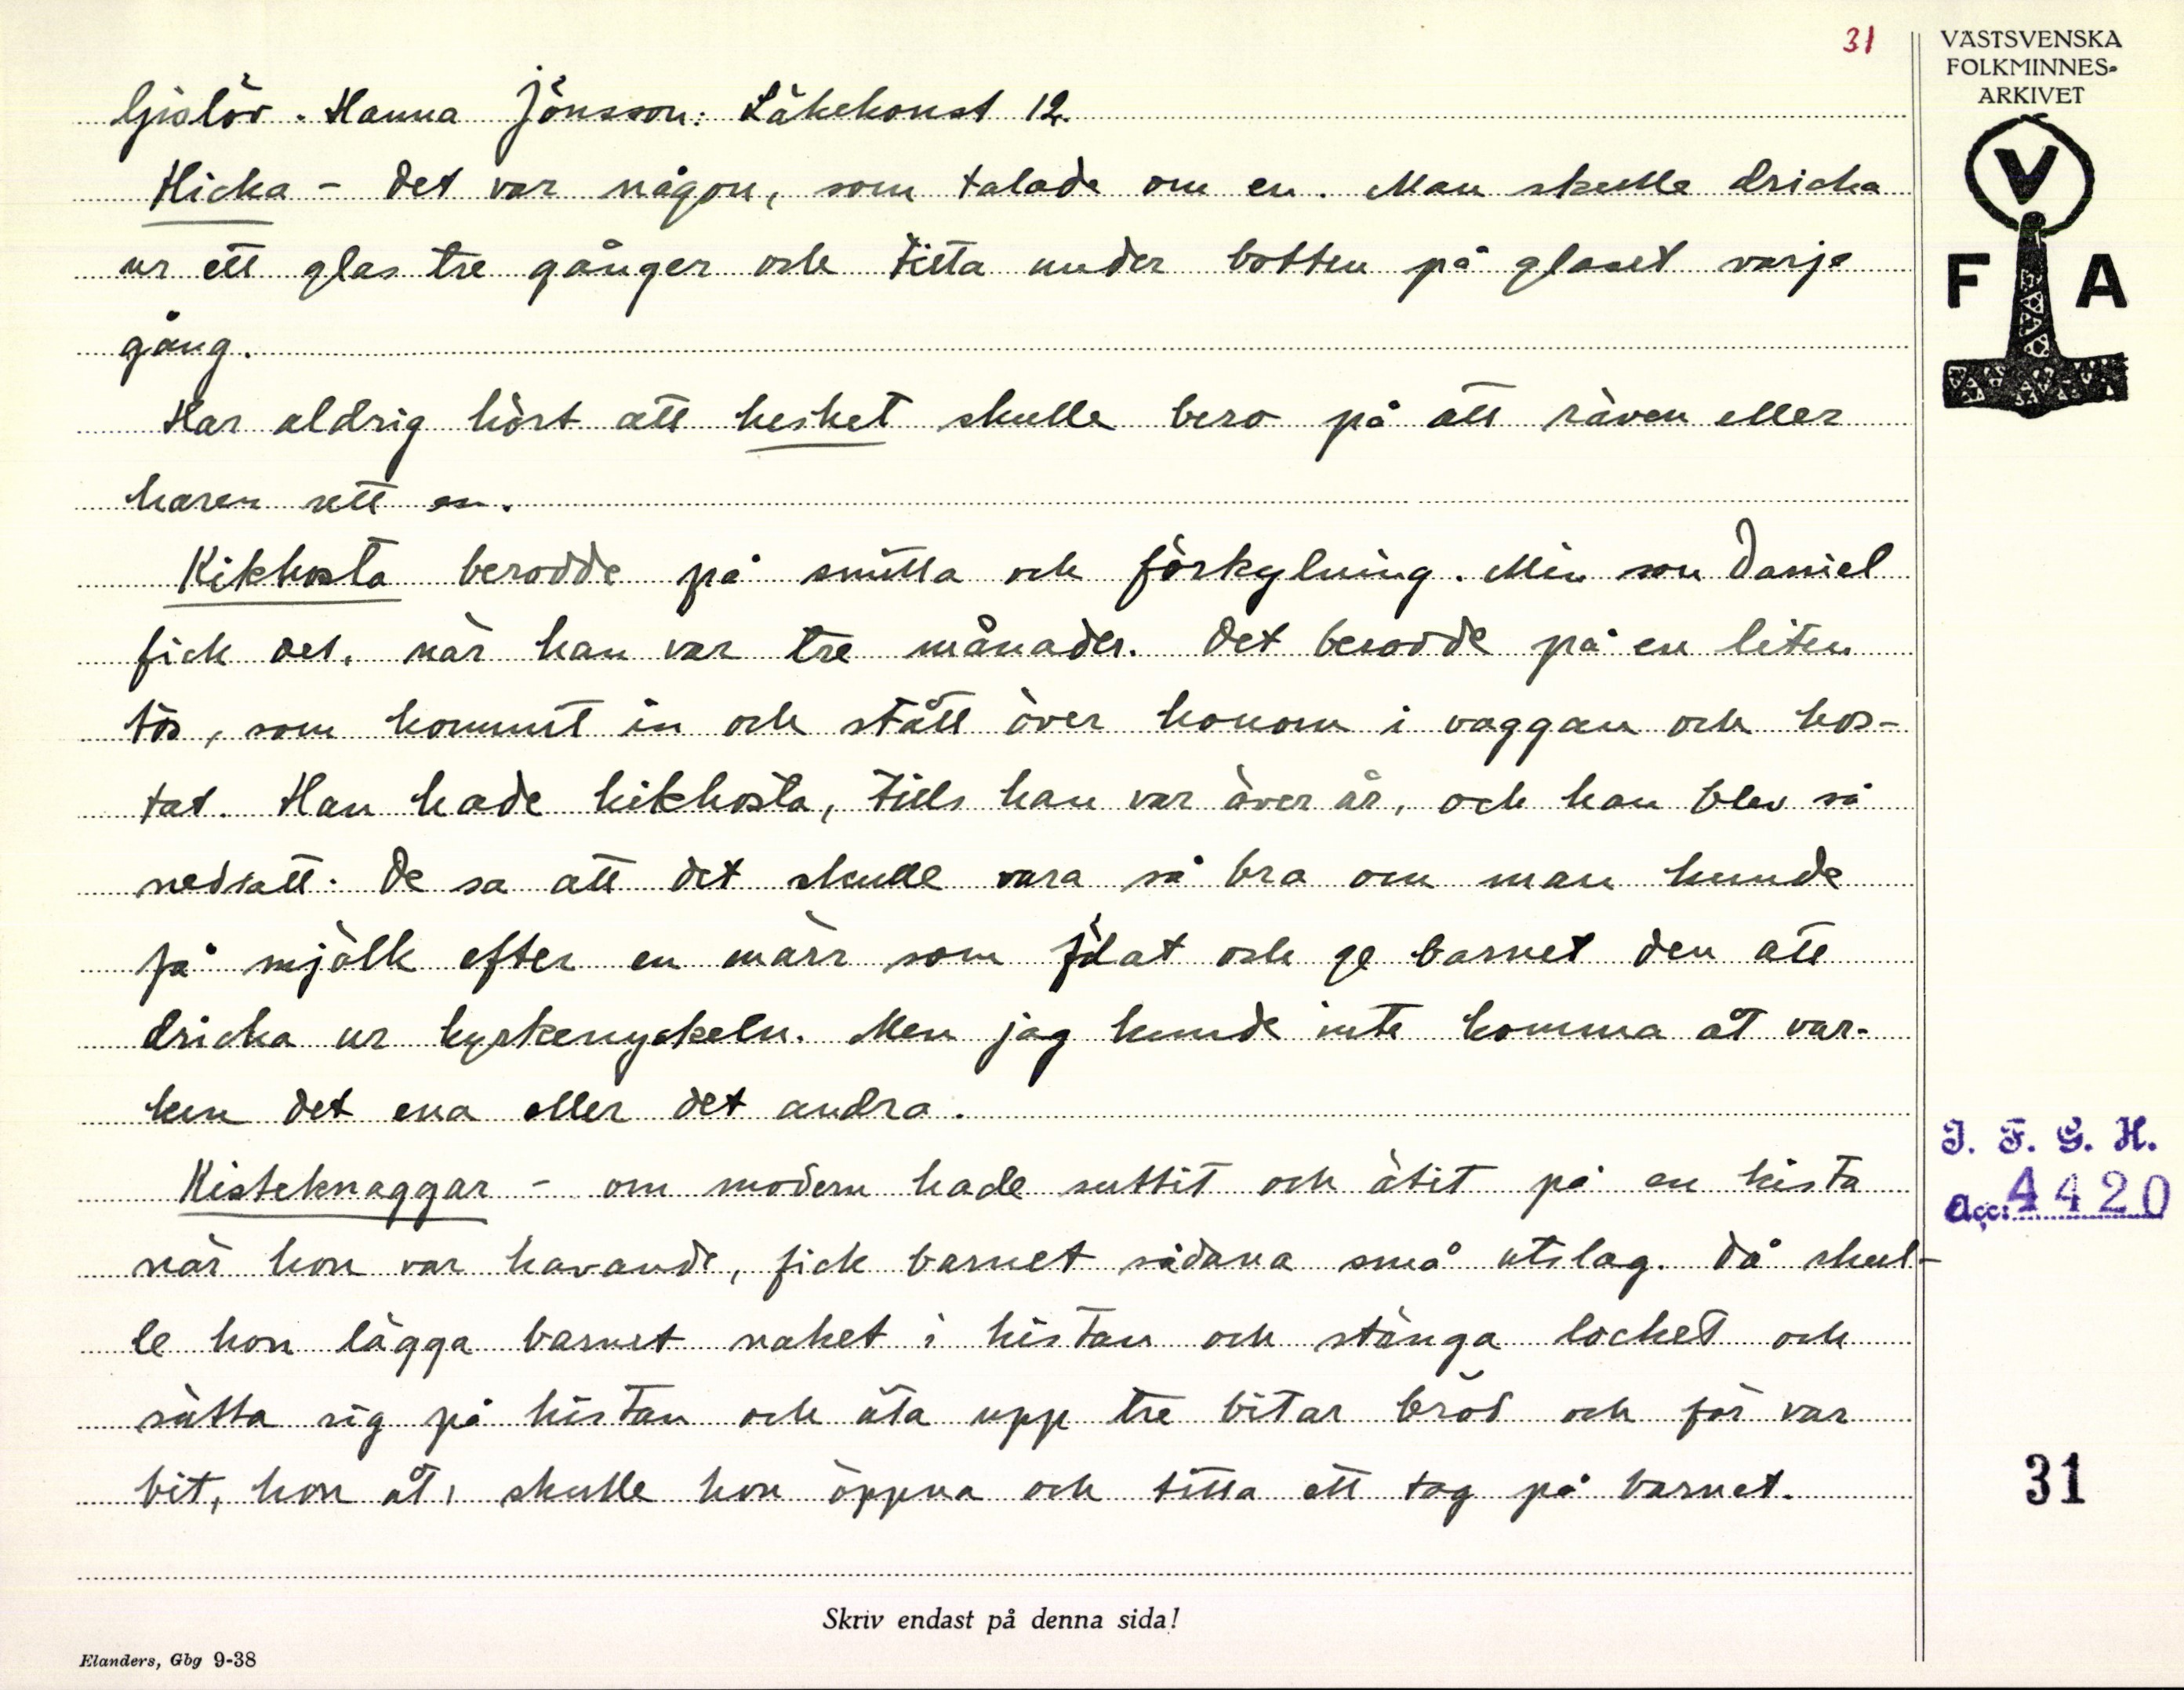 31
VÄSTSVENSKA
FOLKMINNES-
ARKIVET
V
F A
Gislöv. Hanna Jönsson: Läkekonst 12.
Hicka - det var någon, som talade om en. Man skulle dricka
ur ett glas tre gånger och titta under botten på glaset varje
gång.
Har aldrig hört att heshet skulle bero på att räven eller
haren sett en.
Kikhosta berodde på smitta och förkylning. Min son Daniel
fick det, när han var tre månader. Det berodde på en liten
tös, som kommit in och stått över honom i vaggan och hos-
tat. Han hade kikhosta, tills han var över år, och han blev så
nedsatt. De sa att det skulle vara så bra om man kunde
få mjölk efter en märr som fölat och ge barnet den att
dricka ur kyrkenyckeln. Men jag kunde inte komma åt var-
ken det ena eller det andra.
Kisteknaggar - om modern hade suttit och ätit på en kista
när hon var havande, fick barnet sådana små utslag. Då skul-
le hon lägga barnet naket i kistan och stänga locket och
sätta sig på kistan och äta upp tre bitar bröd och för var
bit, hon åt, skulle hon öppna och titta ett tag på barnet.
I. F. G. H.
Acc: 4420
31
Skriv endast på denna sida!
Elanders, Gbg 9-38